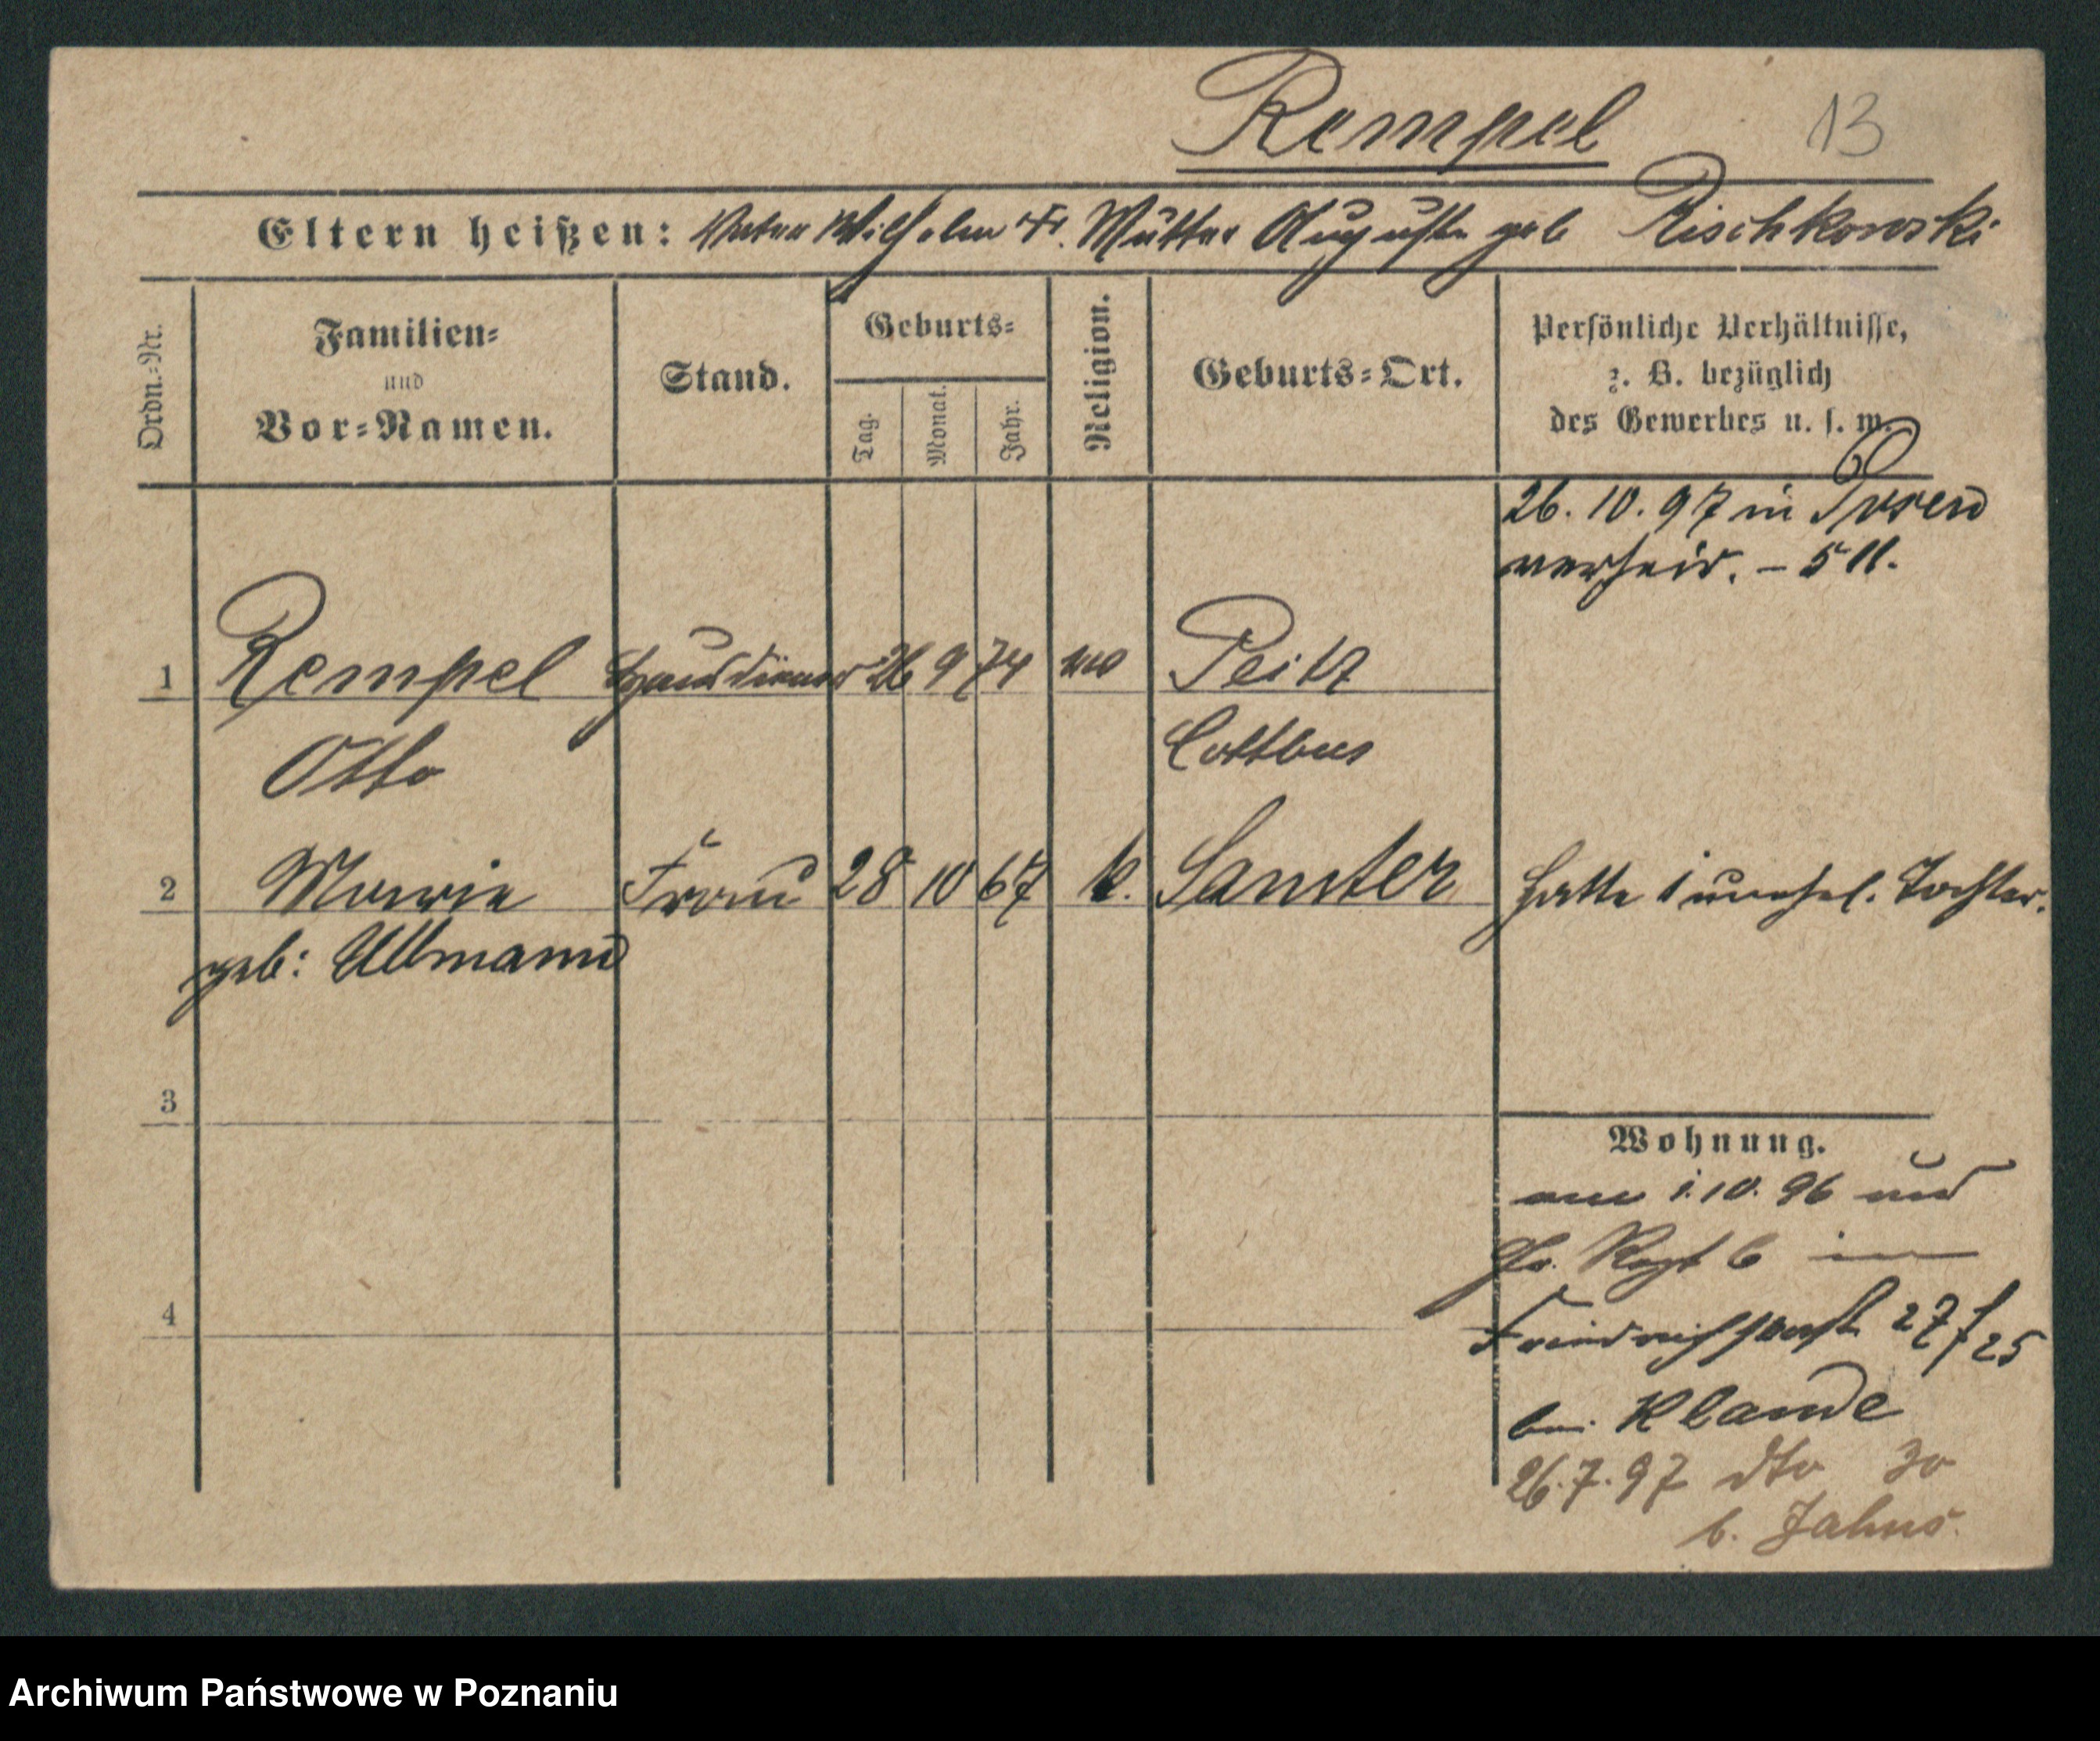 Rempel 13
Eltern heißen: Vater Wilhelm Fr. Mutter Auguste geb Rischkowski
Ordn.=Nr.
Familien=
und
Vor=Namen.
Stand.
Geburts=
Tag.
Monat.
Jahr.
Religion.
Geburts=Ort.
Persönliche Verhältnisse,
z. B. bezüglich
des Gewerbes u. s. w.
26. 10. 97 in Posen
verheir. – 511.
1 Rempel Hausdiener 26 9 74 Peitz
Otto Cottbus
2 Marie Frau 28 10 67 k. Samter hatte 1 unehel. Tochter.
geb: Ullmann
3
4
Wohnung.
1. 10. 96
6
27/25
bei Klande
26. 7. 97 dto 30
b. Jahns.
Archiwum Państwowe w Poznaniu